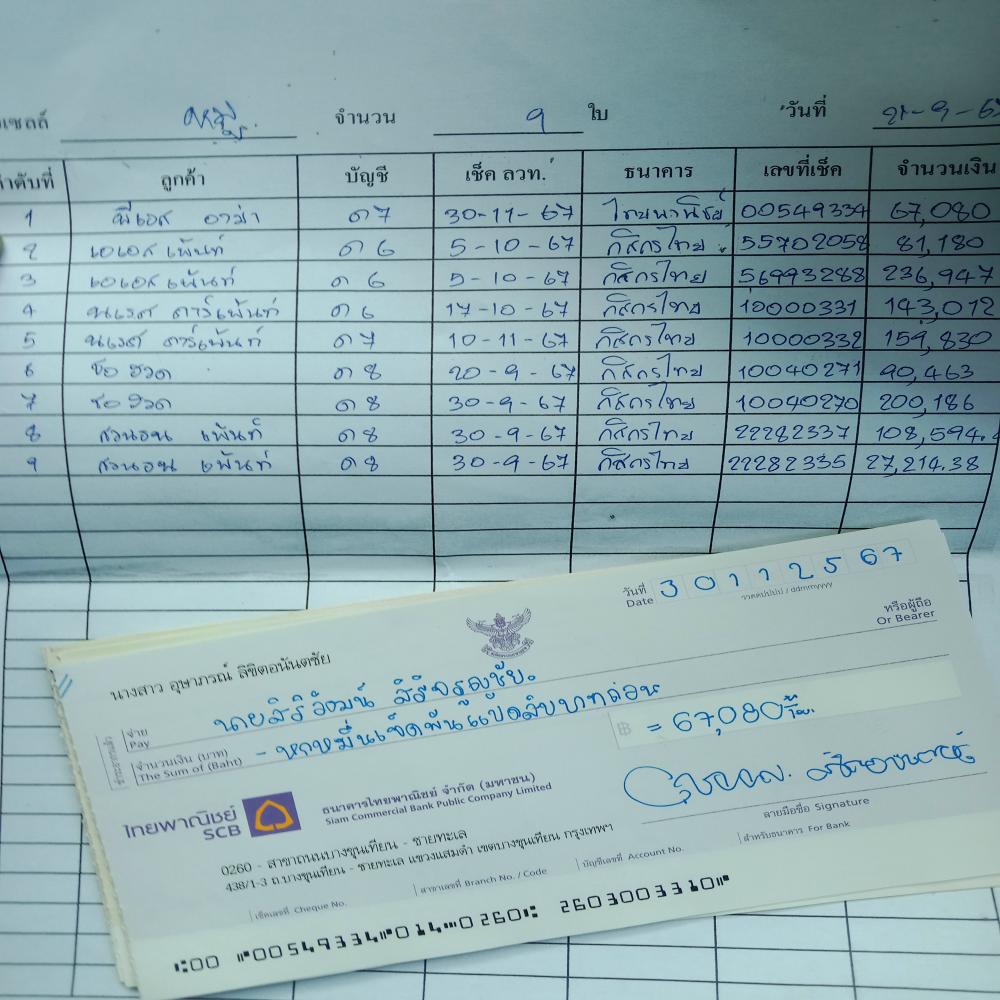 เซลล์ หมู จำนวน 9 ใบ วันที่
ลำดับที่ ลูกค้า บัญชี เช็ค ลวท. ธนาคาร เลขที่เช็ค จำนวนเงิน
1 พีเอส อาม่า ด7 30-11-67 ไทยพานิชย์ 00549334 67,080
2 เอเอส เพ้นท์ ด6 5-10-67 กสิกรไทย 55702058 81,180
3 เอเอส เพ้นท์ ด6 5-10-67 กสิกรไทย 56993288 236,947
4 นเรศ คาร์เพ้นท์ ด6 17-10-67 กสิกรไทย 10000331 143,012
5 นเรศ คาร์เพ้นท์ ด7 10-11-67 กสิกรไทย 10000332 159,830
6 ช่อ ฮวด ด8 20-9-67 กสิกรไทย 10040271 90,463
7 ช่อ ฮวด ด8 30-9-67 กสิกรไทย 10040270 200,186
8 สวนอน เพ้นท์ ด8 30-9-67 กสิกรไทย 22282337 108,594.
9 สวนอน เพ้นท์ ด8 30-9-67 กสิกรไทย 22282335 27,214.38
วันที่ Date 30112567
ววดดปปปป / ddmmyyyy
หรือผู้ถือ
Or Bearer
นางสาว อุษาภรณ์ ลิขิตอนันตชัย
จ่าย Pay นายสิริวัฒน์ สิริจรูญชัย
จำนวนเงิน (บาท) The Sum of (Baht) - หกหมื่นเจ็ดพันแปดสิบบาทถ้วน ฿ = 67,080
ไทยพาณิชย์ SCB
ธนาคารไทยพาณิชย์ จำกัด (มหาชน)
Siam Commercial Bank Public Company Limited
ลายมือชื่อ Signature
0260 - สาขาถนนบางขุนเทียน - ชายทะเล
438/1-3 ถ.บางขุนเทียน - ชายทะเล แขวงแสมดำ เขตบางขุนเทียน กรุงเทพฯ
เช็คเลขที่ Cheque No. สาขาเลขที่ Branch No. / Code บัญชีเลขที่ Account No. สำหรับธนาคาร For Bank
⑆00 ⑈00549334⑈014⑉0260⑆ 2603003310⑈